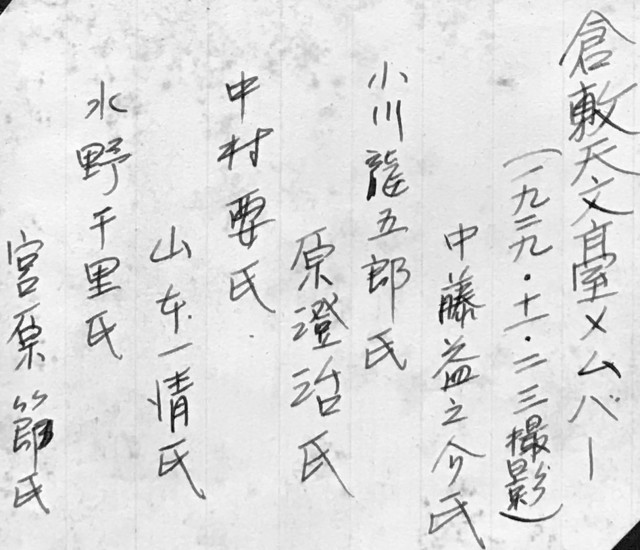 倉敷天文臺メムバー
(一九二九・十一・二三撮影)
中藤益之介氏
小川龍五郎氏
原澄治氏
中村要氏
山本一清氏
水野千里氏
宮原節氏